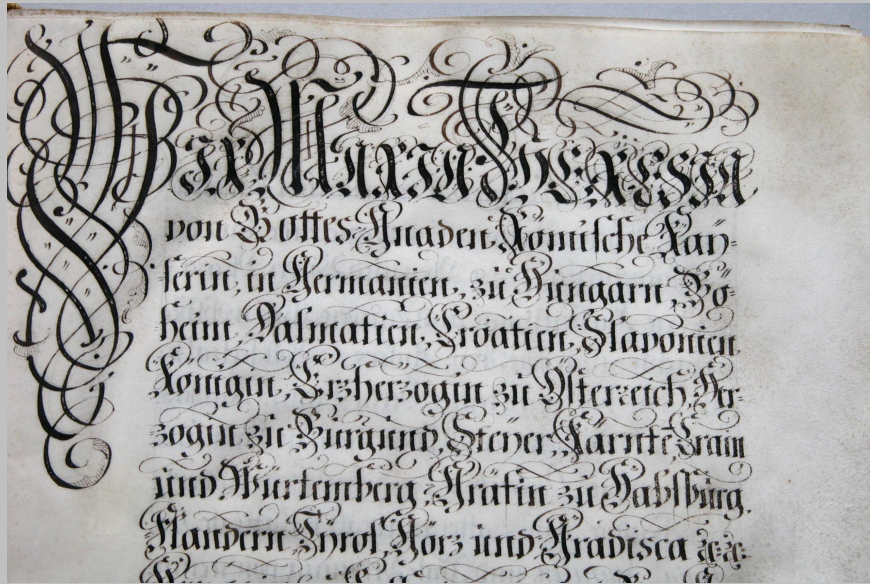 Wir Maria Theresia
von Gottes Gnaden Römische Kay-
serin, in Germanien, zu Hungarn, Bö-
heim, Dalmatien, Croatien, Slavonien
Königin, Erzherzogin zu Österreich, Her-
zogin zu Burgund, Steyer, Kärntē, Crain
und Würtemberg, Gräfin zu Habsburg,
Flandern, Tyrol, Görz und Gradisca